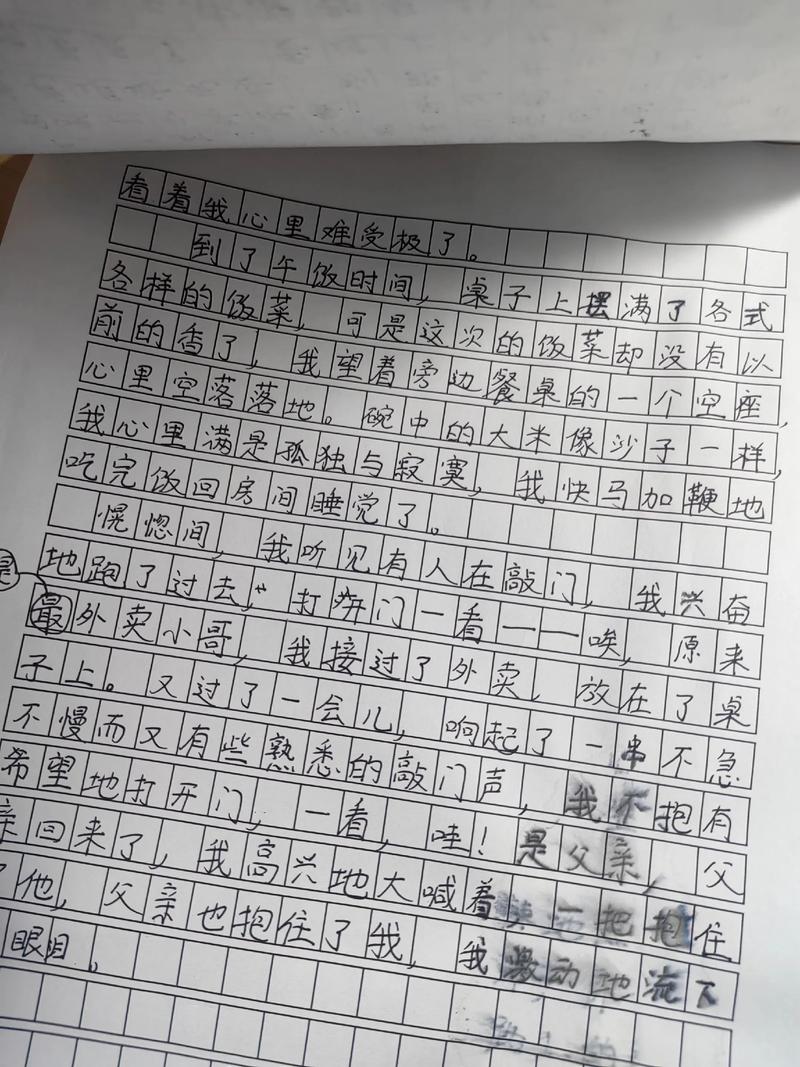 看着我心里难受极了。
到了午饭时间，桌子上摆满了各式
各样的饭菜，可是这次的饭菜却没有以
前的香了，我望着旁边餐桌的一个空座，
心里空落落地。碗中的大米像沙子一样，
我心里满是孤独与寂寞，我快马加鞭地
吃完饭回房间睡觉了。
恍惚间，我听见有人在敲门，我兴奋
地跑了过去，打开门一看——唉，原来
是
最外卖小哥，我接过了外卖，放在了桌
子上。又过了一会儿，响起了一串不急
不慢而又有些熟悉的敲门声，我不抱有
希望地打开门，一看，哇！是父亲，父
亲回来了，我高兴地大喊着一把抱住
了他，父亲也抱住了我，我激动地流下
眼泪。